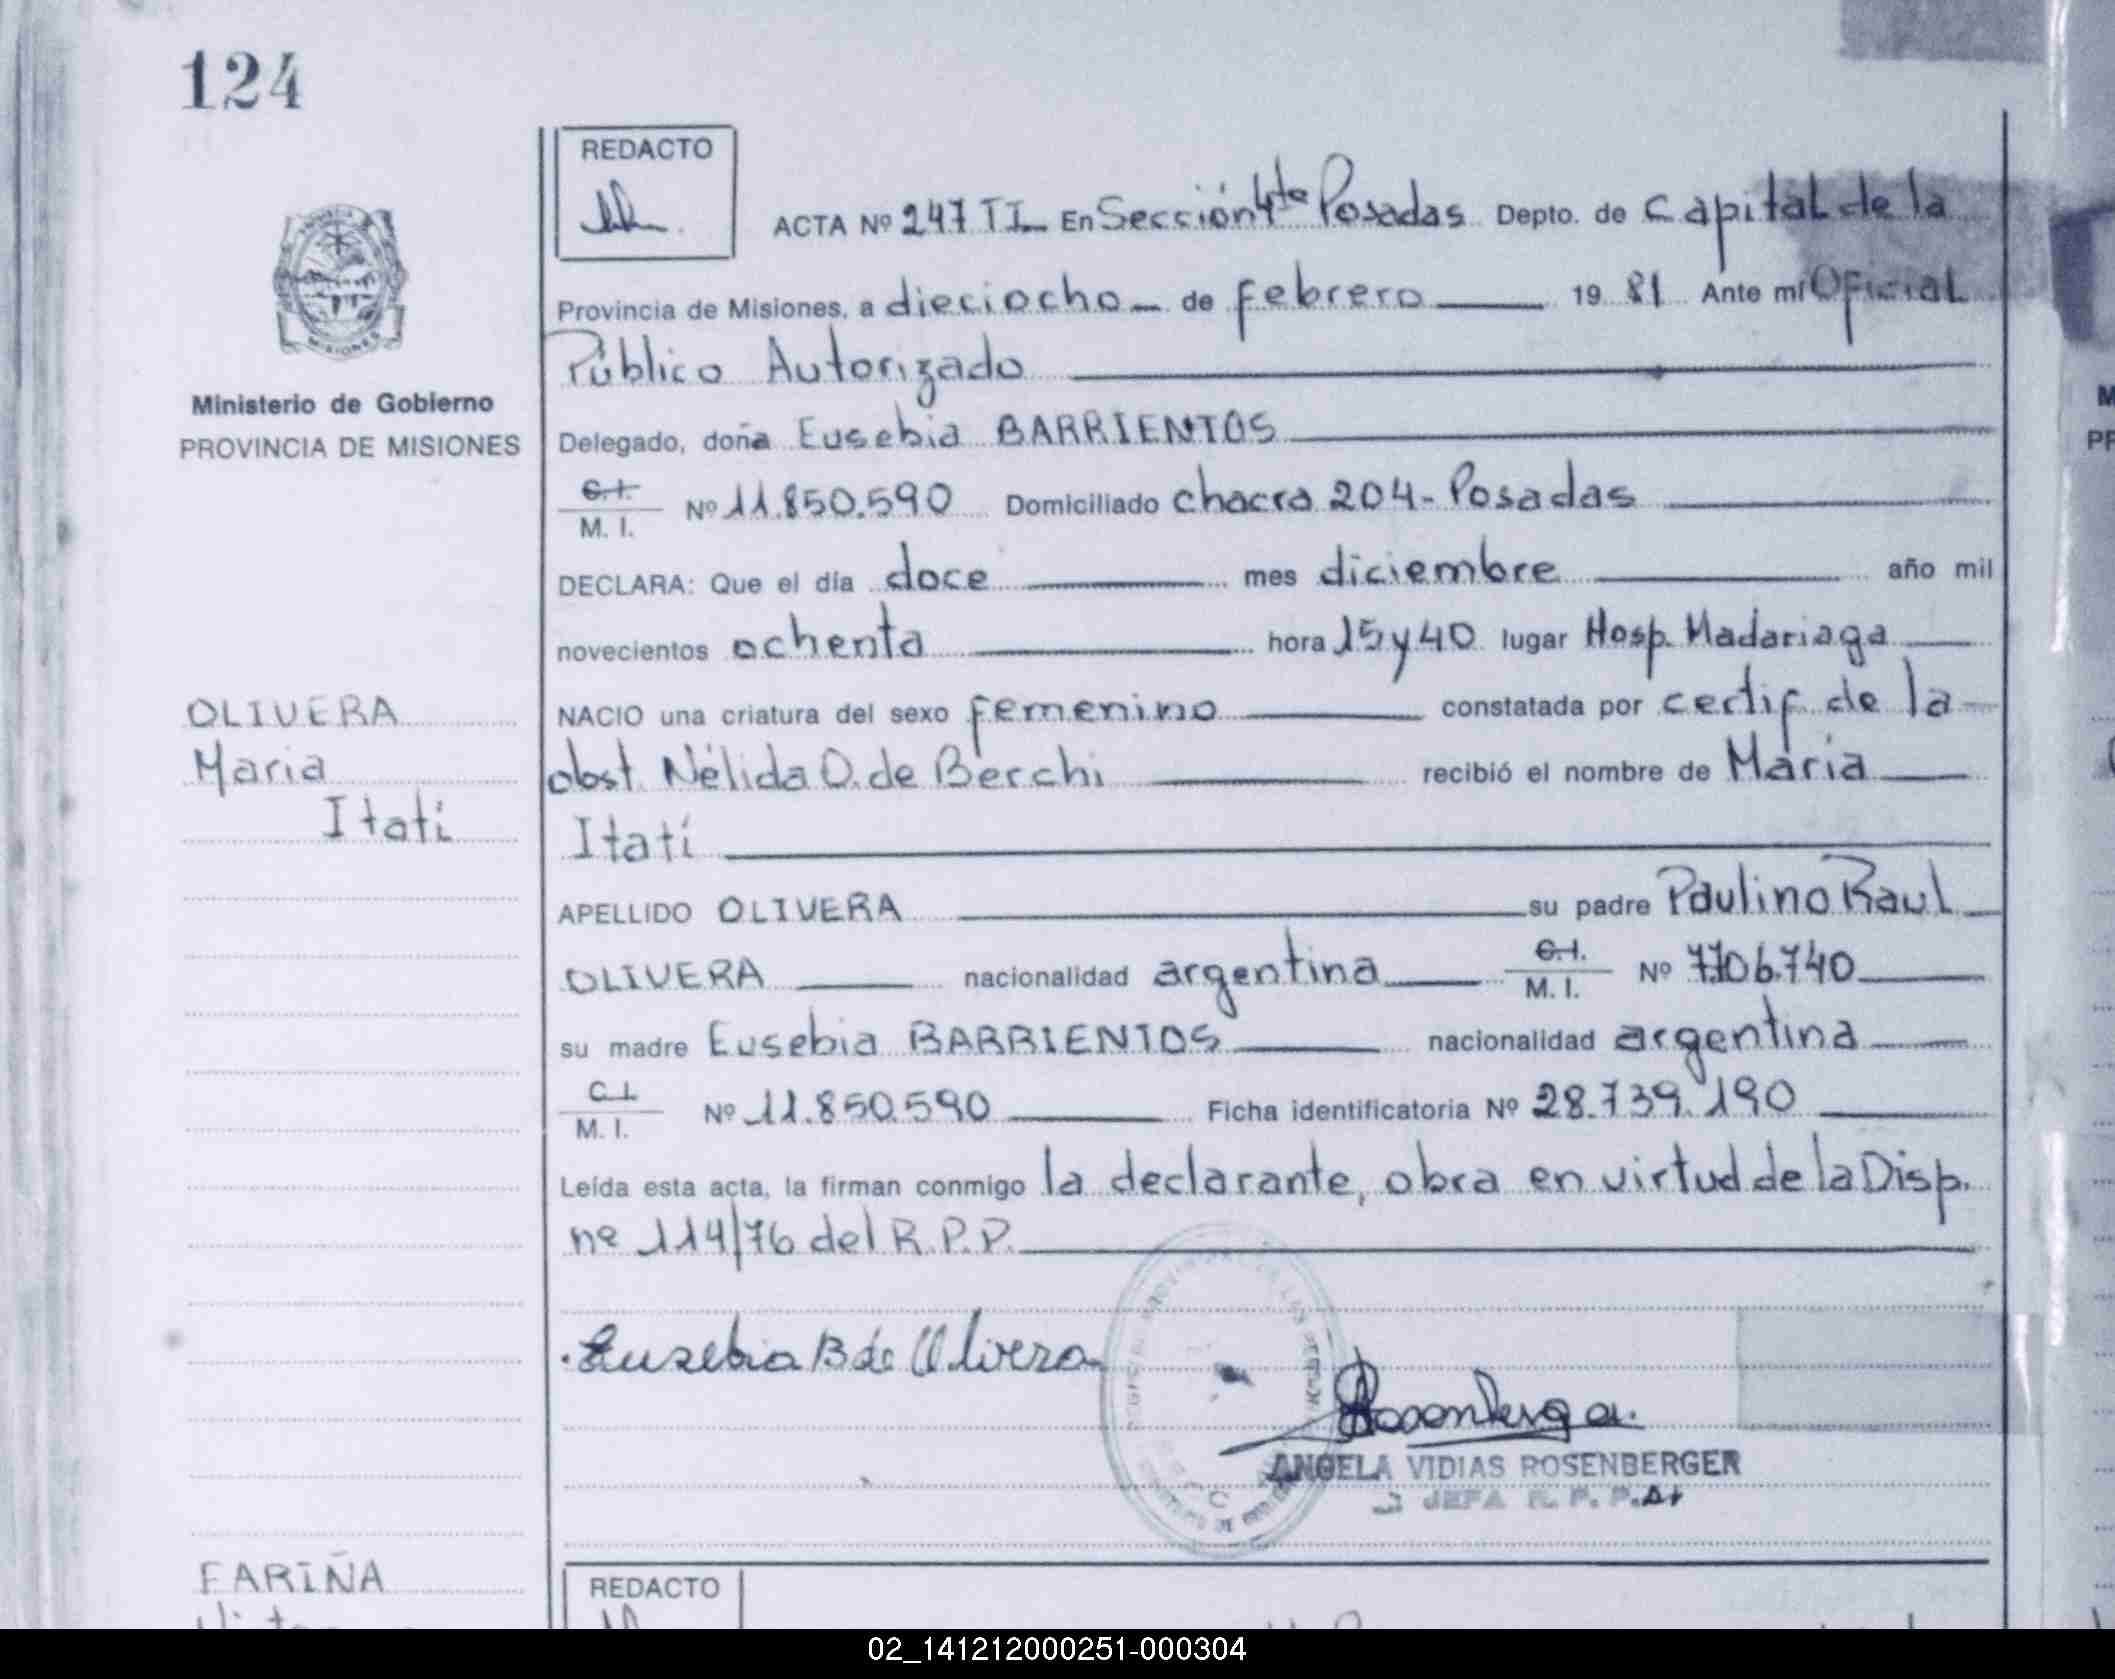 124
REDACTO
ACTA Nº 247 TI En Sección 4ta Posadas Depto. de Capital de la
Provincia de Misiones, a dieciocho de febrero 19 81 Ante mí Oficial
Público Autorizado
Ministerio de Gobierno
PROVINCIA DE MISIONES
Delegado, doña Eusebia BARRIENTOS
C.I.
M. I. Nº 11.850.590 Domiciliado chacra 204 - Posadas
DECLARA: Que el día doce mes diciembre año mil
novecientos ochenta hora 15 y 40 lugar Hosp. Madariaga
OLIVERA
Maria
Itatí
NACIO una criatura del sexo femenino constatada por certif. de la
obst. Nélida O. de Berchi recibió el nombre de María
Itatí
APELLIDO OLIVERA su padre Paulino Raul
OLIVERA nacionalidad argentina C.I. M. I. Nº 7.706.740
su madre Eusebia BARRIENTOS nacionalidad argentina
C.I.
M. I. Nº 11.850.590 Ficha identificatoria Nº 28.739.190
Leída esta acta, la firman conmigo la declarante, obra en virtud de la Disp.
nº 114/76 del R.P.P.
Eusebia B de Olivera
Rosenberger
ANGELA VIDIAS ROSENBERGER
JEFA R. P. P.
FARIÑA
REDACTO
02_141212000251-000304